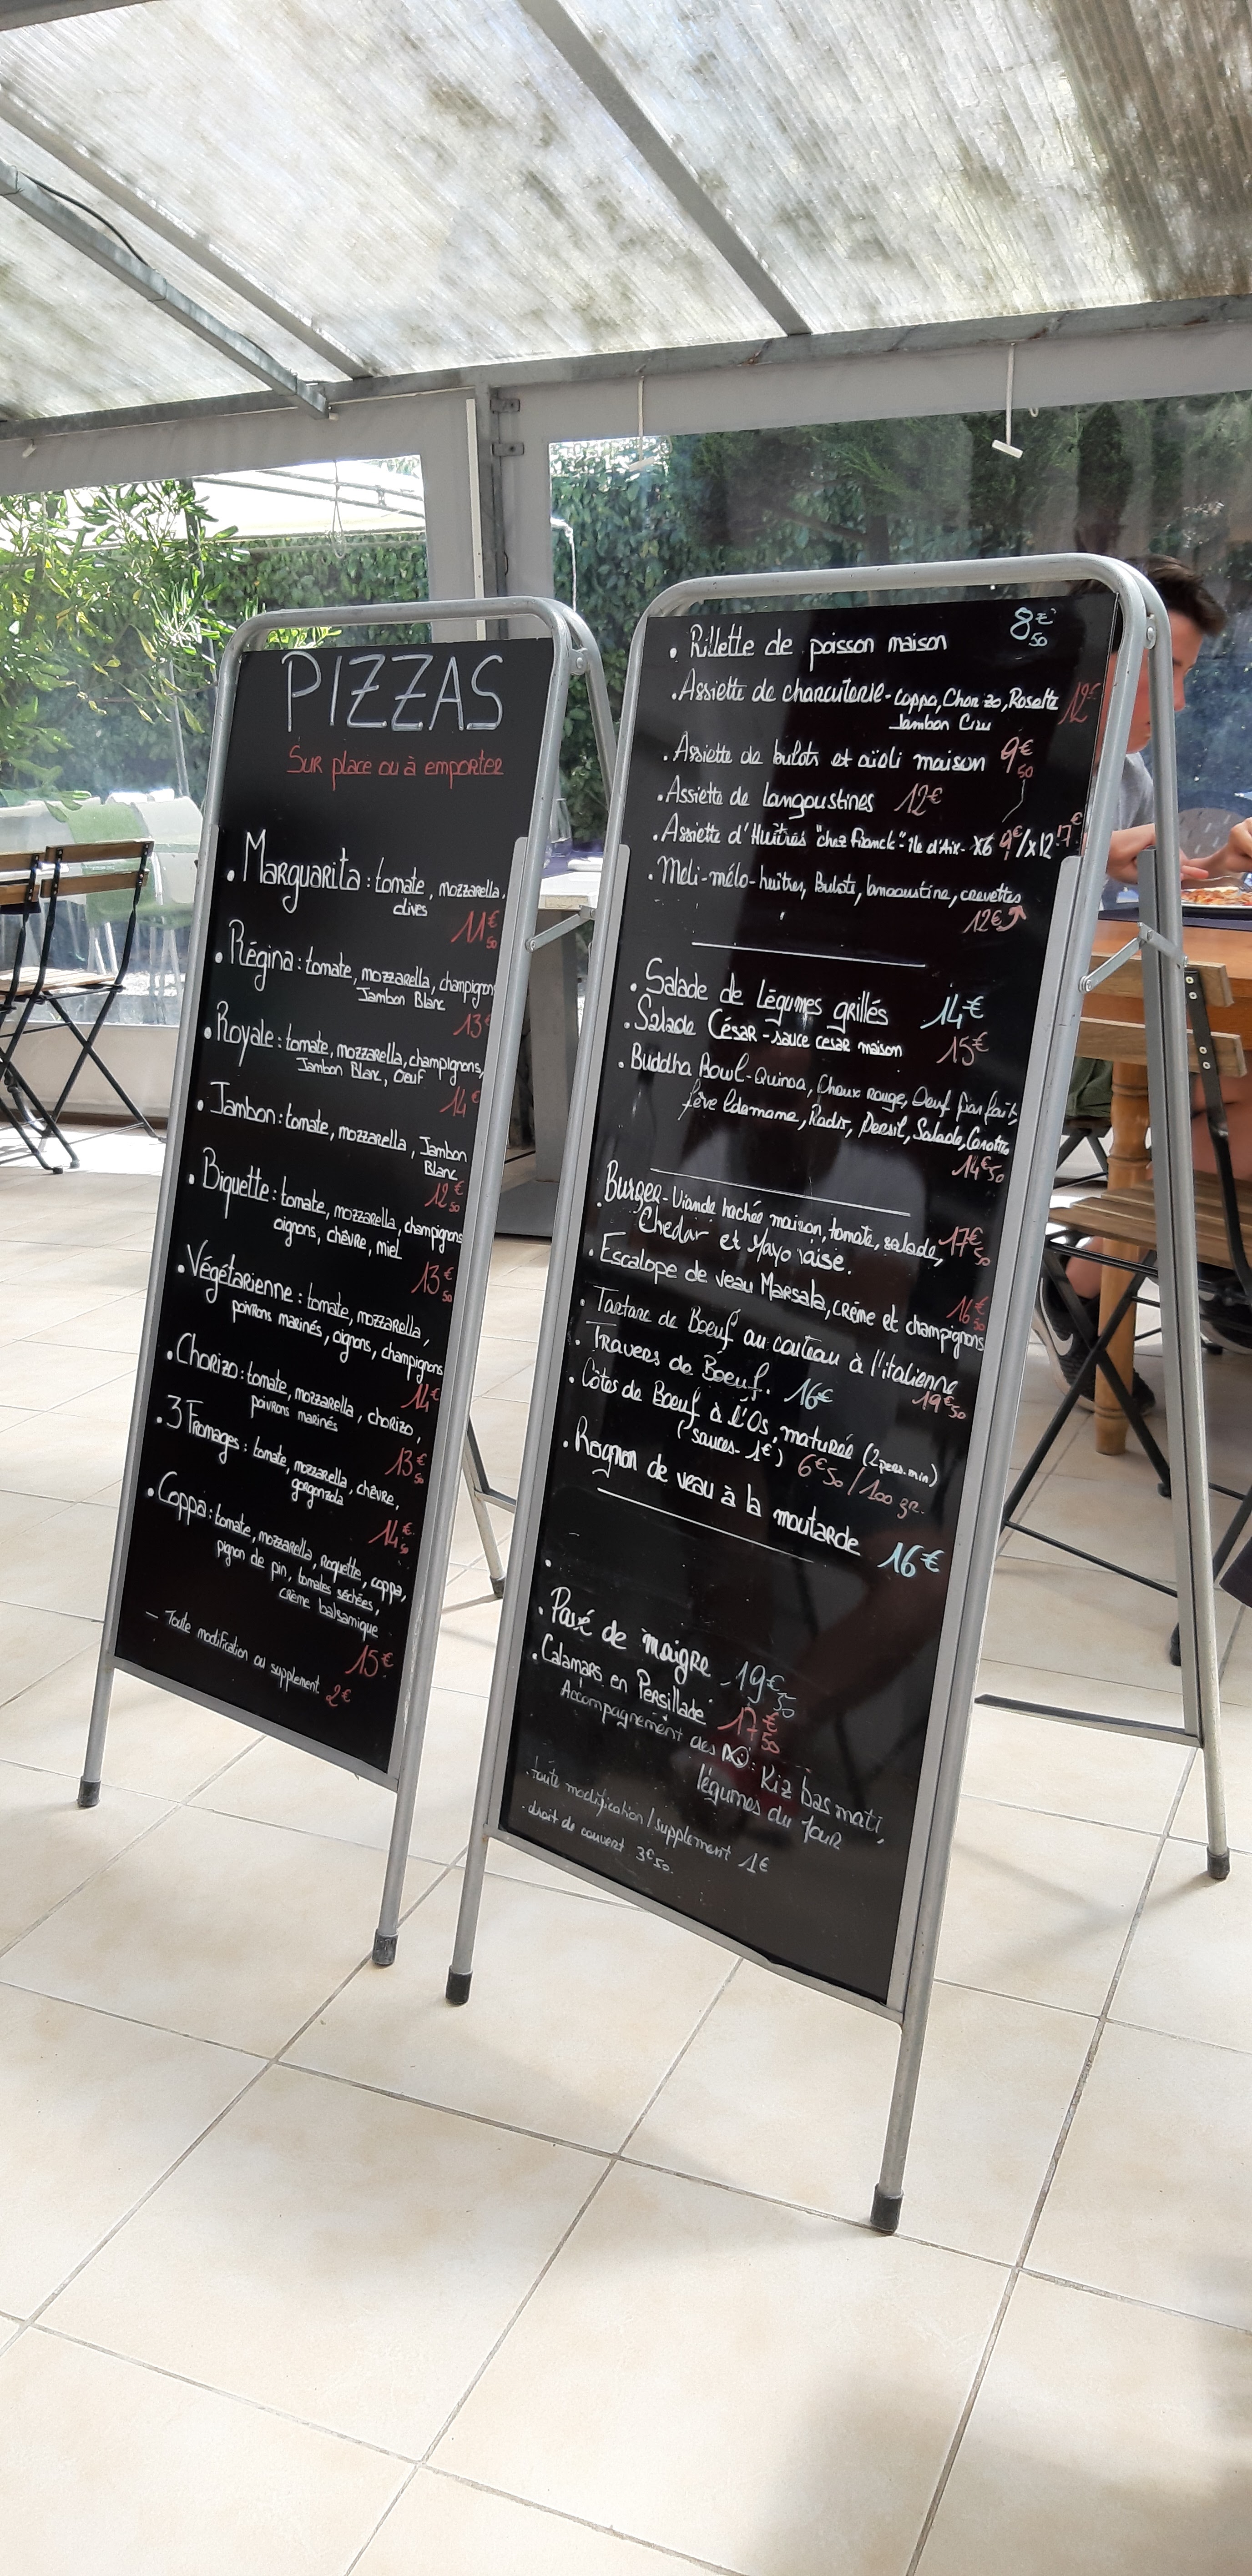 PIZZAS
Sur place ou à emporter
. Marguarita : tomate, mozzarella,
olives
11€50
. Régina : tomate, mozzarella, champignons
Jambon Blanc
13€
. Royale : tomate, mozzarella, champignons,
Jambon Blanc, Oeuf
14€
. Jambon : tomate, mozzarella, Jambon
Blanc
12€50
. Biquette : tomate, mozzarella, champignons
oignons, chèvre, miel
13€50
. Végétarienne : tomate, mozzarella,
poivrons marinés, oignons, champignons
14€
. Chorizo : tomate, mozzarella, chorizo,
poivrons marinés
13€50
. 3 Fromages : tomate, mozzarella, chèvre,
gorgonzola
14€50
. Coppa : tomate, mozzarella, roquette, coppa,
pignon de pin, tomates séchées,
crème balsamique
15€
- Toute modification ou supplement
2€
. Rillette de poisson maison 8€50
. Assiette de charcuterie - Coppa, Chorizo, Rosette 12€
Jambon Cru
. Assiette de bulots et aïoli maison 9€50
. Assiette de langoustines 12€
. Assiette d'Huîtres "chez Franck" - Ile d'Aix - x6 9€/x12 17€
. Méli-mélo - huîtres, Bulots, langoustine, crevettes
12€
. Salade de Légumes grillés 14€
. Salade César - sauce césar maison 15€
. Buddha Bowl - Quinoa, Choux rouge, Oeuf parfait,
fève Edamame, Radis, Persil, Salade, Carotte
14€50
. Burger - Viande hachée maison, tomate, salade, 17€50
Chedar et Mayonaise.
. Escalope de veau Marsala, crème et champignons
16€50
. Tartare de Boeuf au couteau à l'italienne
19€50
. Travers de Boeuf. 16€
. Côtes de Boeuf à l'Os, maturée (2 pers. min)
(sauces - 1€) 6€50 / 100 gr.
. Rognon de veau à la moutarde 16€
. Pavé de maigre 19€50
. Calamars en Persillade 17€50
Accompagnement des : Riz basmati,
légumes du Jour
. toute modification / supplement 1€
. droit de couvert 3€50.